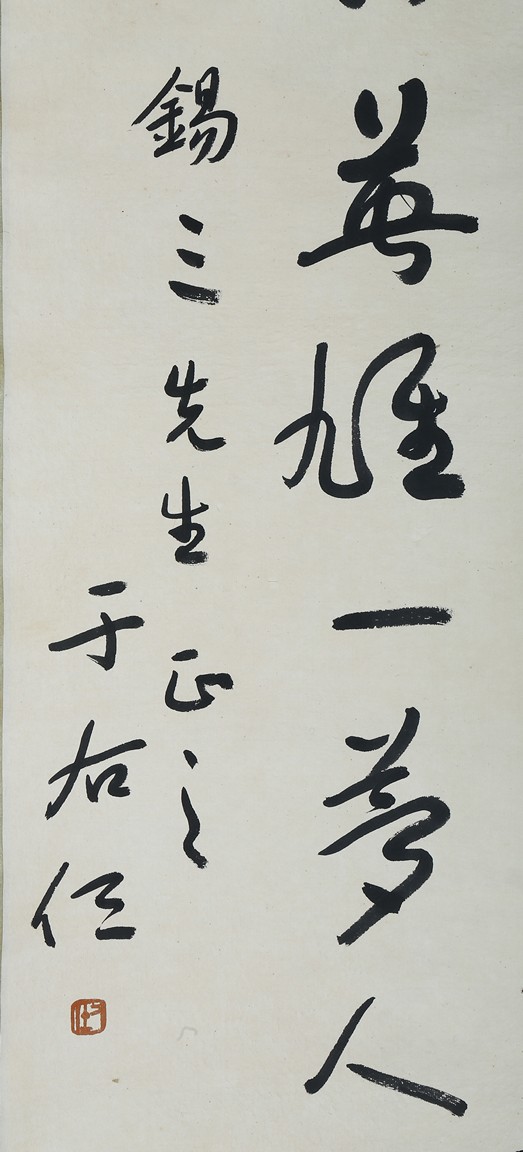 英雄一夢人
錫三先生正之
于右任
右任